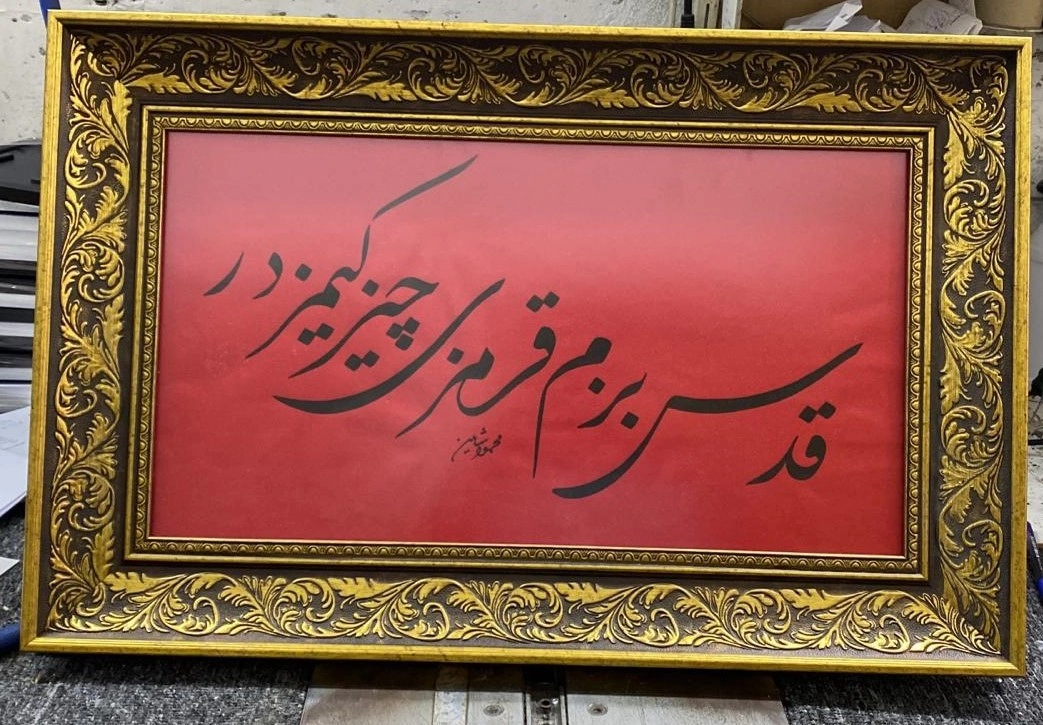 قدس بزم قرمزی چیزکیمزدر
محمود شاهین